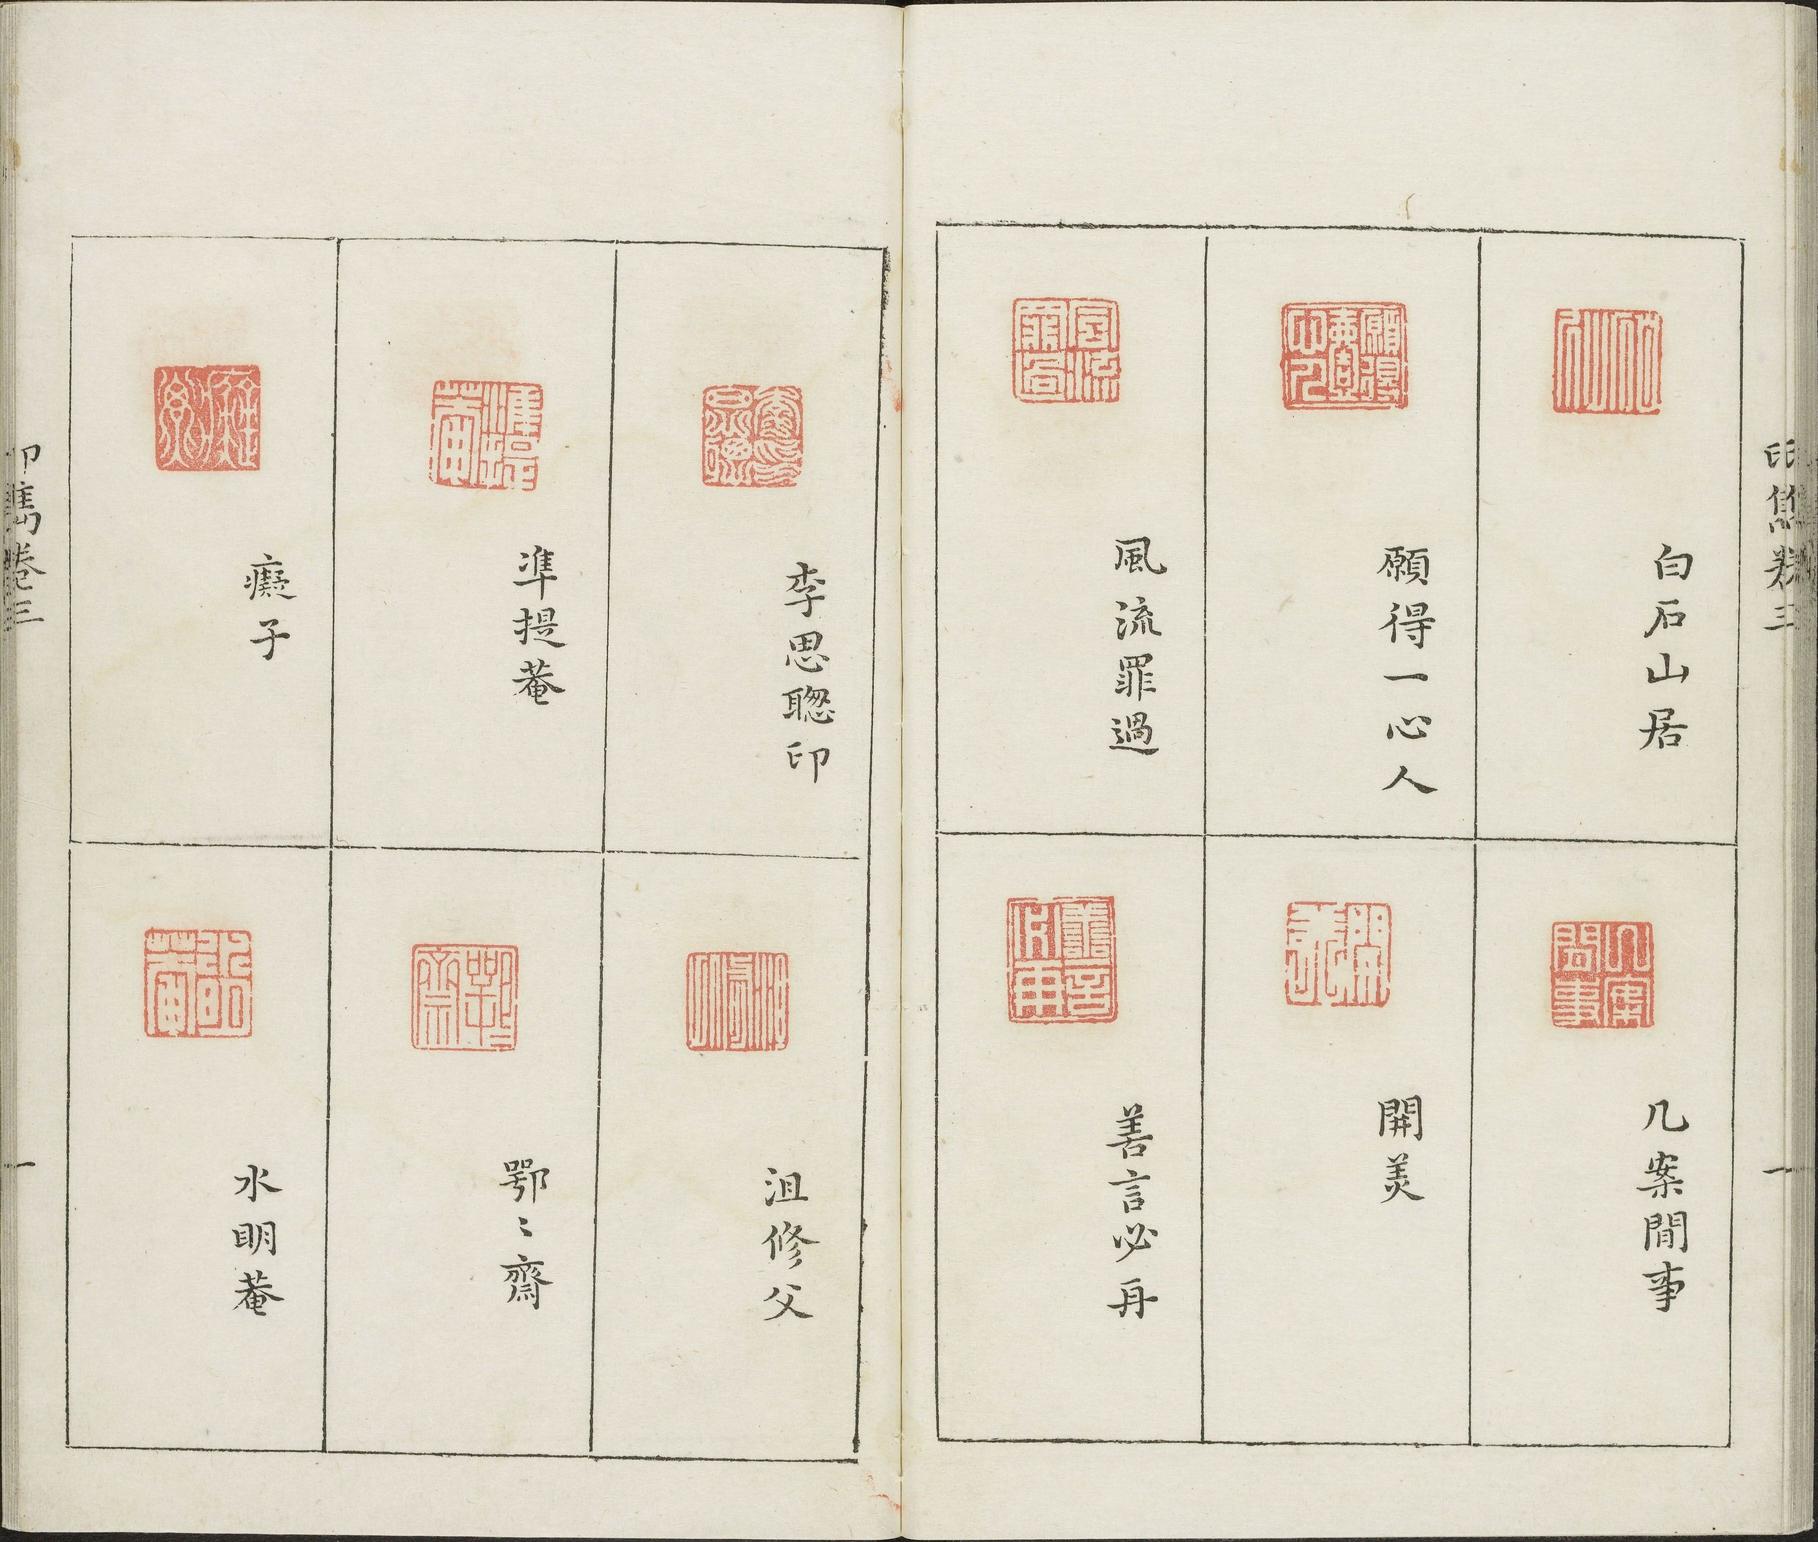 白石山居
願得一心人
風流罪過
几案閒事
開美
善言必再
李思聰印
準提菴
癡子
沮修父
鄂〻齋
水明菴
印雋卷三
一